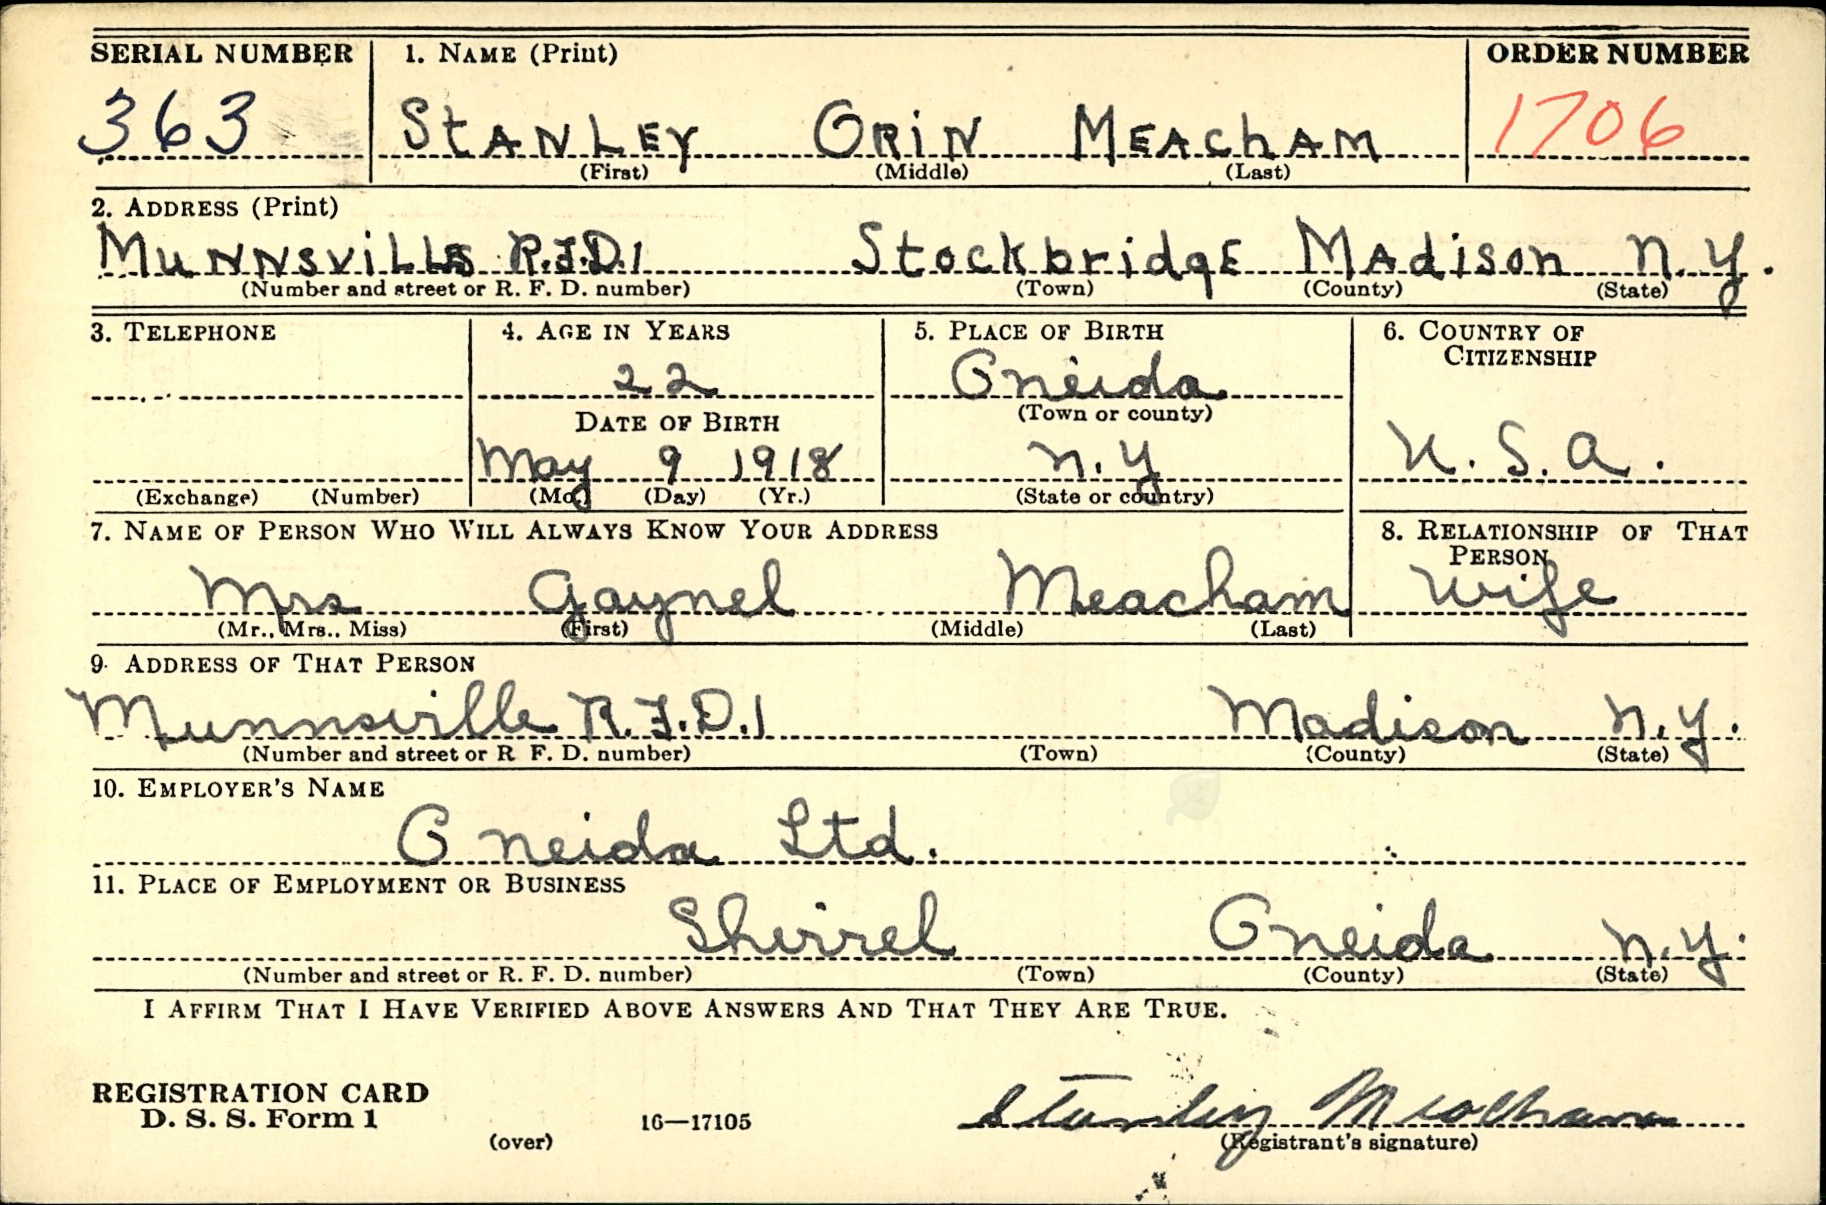 SERIAL NUMBER 1. NAME (Print) ORDER NUMBER
363 STANLEY ORIN MEACHAM 1706
(First) (Middle) (Last)
2. ADDRESS (Print)
MUNNSVILLE R.F.D.1 Stockbridge Madison N.Y.
(Number and street or R. F. D. number) (Town) (County) (State)
3. TELEPHONE 4. AGE IN YEARS 5. PLACE OF BIRTH 6. COUNTRY OF
CITIZENSHIP
22 Oneida
DATE OF BIRTH (Town or county)
May 9 1918 N.Y U.S.A.
(Exchange) (Number) (Mo.) (Day) (Yr.) (State or country)
7. NAME OF PERSON WHO WILL ALWAYS KNOW YOUR ADDRESS 8. RELATIONSHIP OF THAT
PERSON
Mrs Gaynel Meacham Wife
(Mr., Mrs., Miss) (First) (Middle) (Last)
9. ADDRESS OF THAT PERSON
Munnsville R.F.D.1 Madison N.Y.
(Number and street or R F. D. number) (Town) (County) (State)
10. EMPLOYER'S NAME
Oneida Ltd.
11. PLACE OF EMPLOYMENT OR BUSINESS
Shirrel Oneida N.Y.
(Number and street or R. F. D. number) (Town) (County) (State)
I AFFIRM THAT I HAVE VERIFIED ABOVE ANSWERS AND THAT THEY ARE TRUE.
REGISTRATION CARD
D. S. S. Form 1 16—17105 Stanley Meacham
(over) (Registrant's signature)